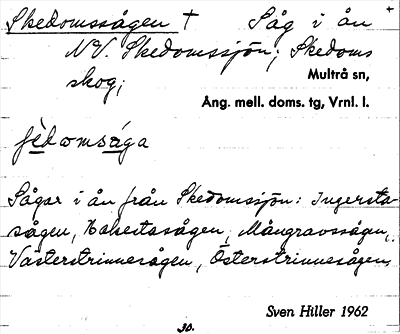 Skedomssågen † Såg i ån
NV. Skedomssjön; Skedoms
skog;
Multrå sn,
Ång. mell. doms. tg, Vrnl. l.
fèdomsåga
Sågar i ån från Skedomssjön: Ingersta-
sågen, Habertasågen, Mångravssågen,
Västerstrinnesågen, Österstrinnesågen,
Sven Hiller 1962
30.